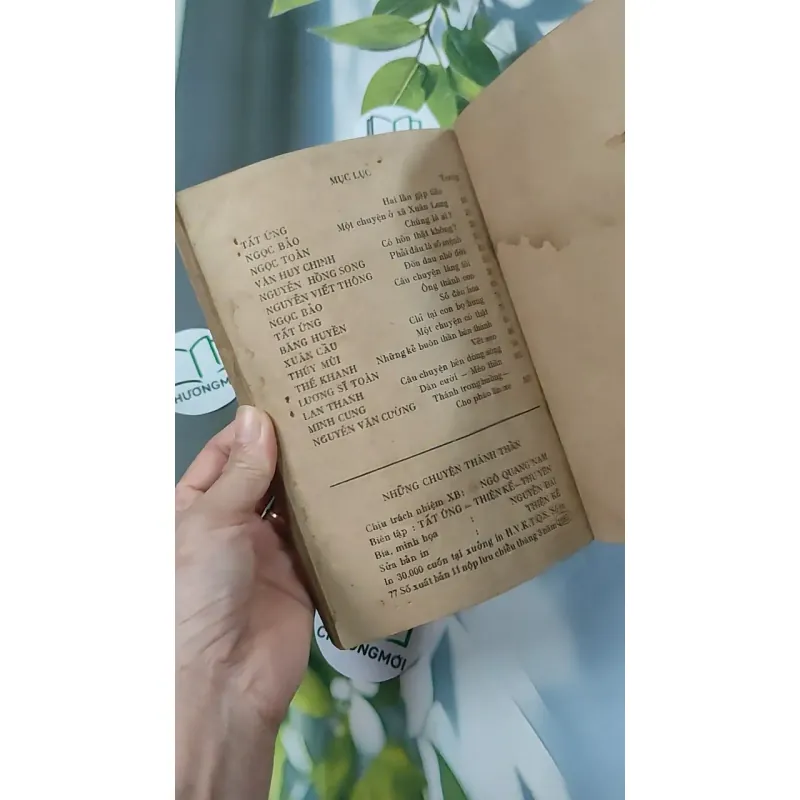 MỤC LỤC
Trang
TẤT ỨNG Hai lần gặp tiên
NGỌC BẢO Một chuyện ở xã Xuân Lung
NGỌC TOÀN Chúng là ai ?
VĂN HUY CHINH Có hồn thật không ?
NGUYỄN HỒNG SONG Phải đâu là số mệnh
NGUYỄN VIẾT THÔNG Đớn đau nhớ đời
NGỌC BẢO Câu chuyện làng tôi
TẤT ỨNG Ông thánh
BĂNG HUYỀN Số đào hoa
XUÂN CẦU Chỉ tại con bọ hung
THÚY MÙI Một chuyện có thật
THẾ KHANH Những kẻ buôn thần bán thánh
LƯƠNG SĨ TOÀN Vết
LAN THANH Câu chuyện bên dòng sông
MINH CUNG Dàn cưới — Mèo
NGUYỄN VĂN CƯỜNG Thánh trong
Cho pháo
NHỮNG CHUYỆN THÁNH THẦN
Chịu trách nhiệm XB: NGÔ QUANG NAM
Biên tập : TẤT ỨNG — THIÊN KẾ — THU YÊN
Bìa, minh họa : NGUYỄN ĐẠI
Sửa bản in : THIÊN KẾ
In 30.000 cuốn tại xưởng in H.V.K.T.Q.S.
77 Số xuất bản 11 nộp lưu chiểu tháng 3 năm
CHƯƠNGMỚI
CHƯƠNGMỚI